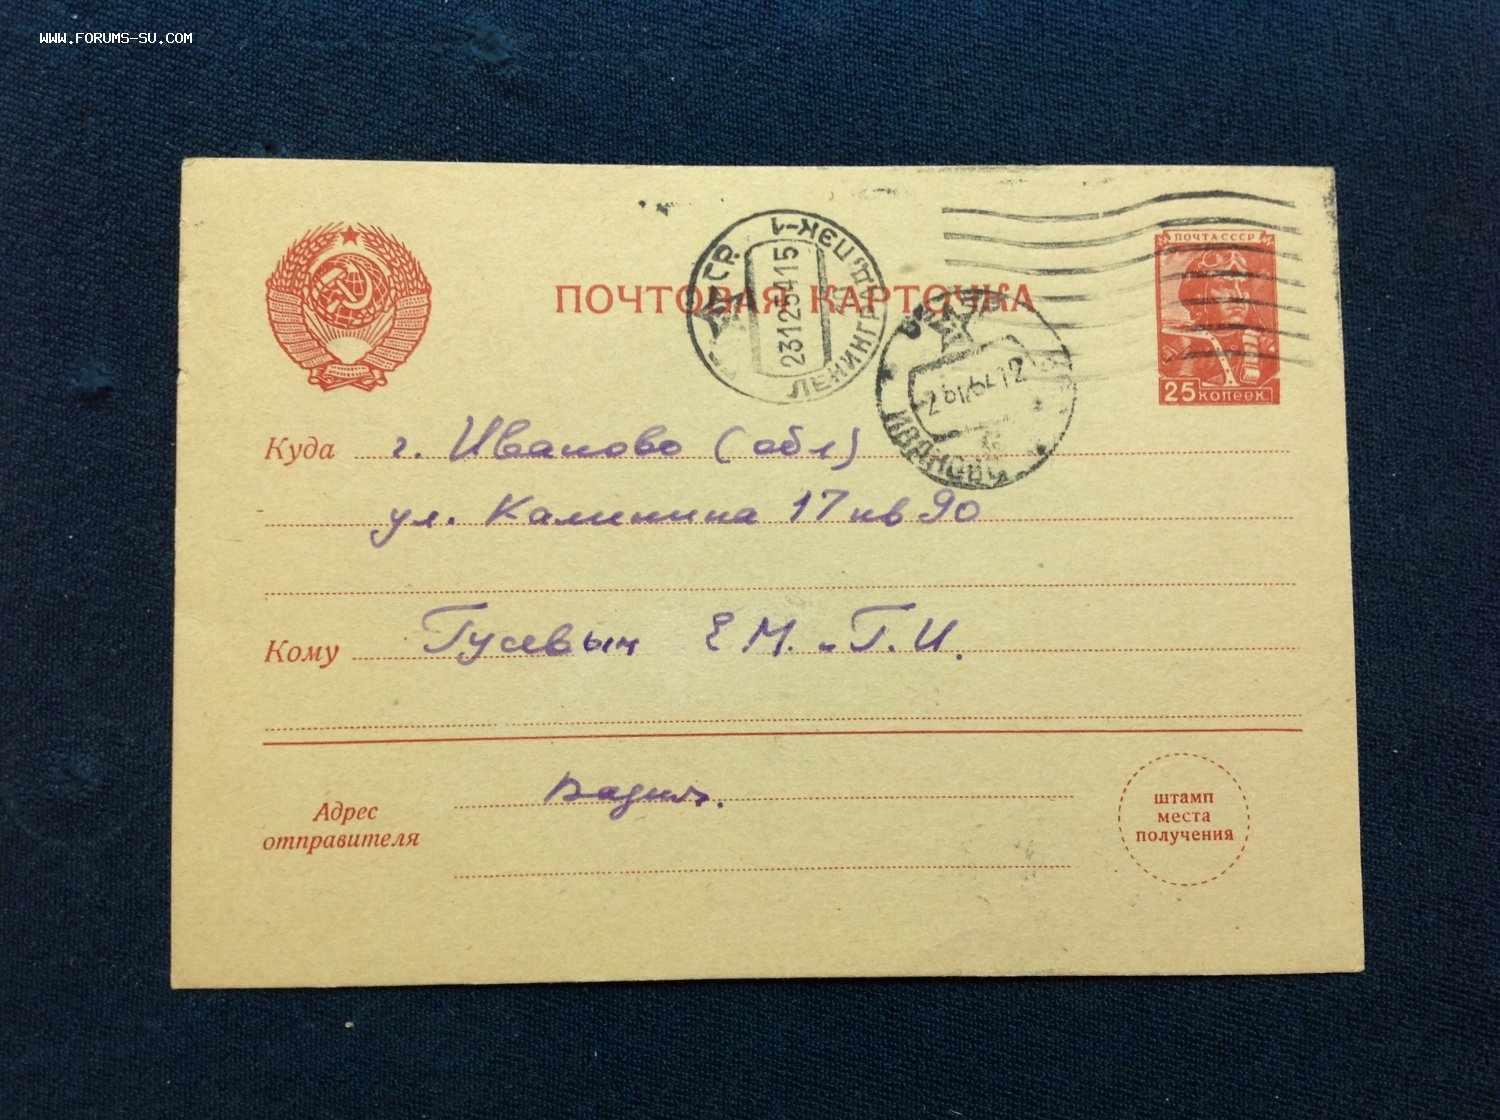 WWW.FORUMS-SU.COM
ПОЧТОВАЯ КАРТОЧКА
ПОЧТА СССР
25 КОПЕЕК
ЛЕНИНГРАД
23125415
ИВАНОВО
Куда г. Иваново (обл)
ул. Калинина 17 кв 90
Кому Гусевым Е.М. и Г.И.
Адрес
отправителя
Вадим.
штамп
места
получения